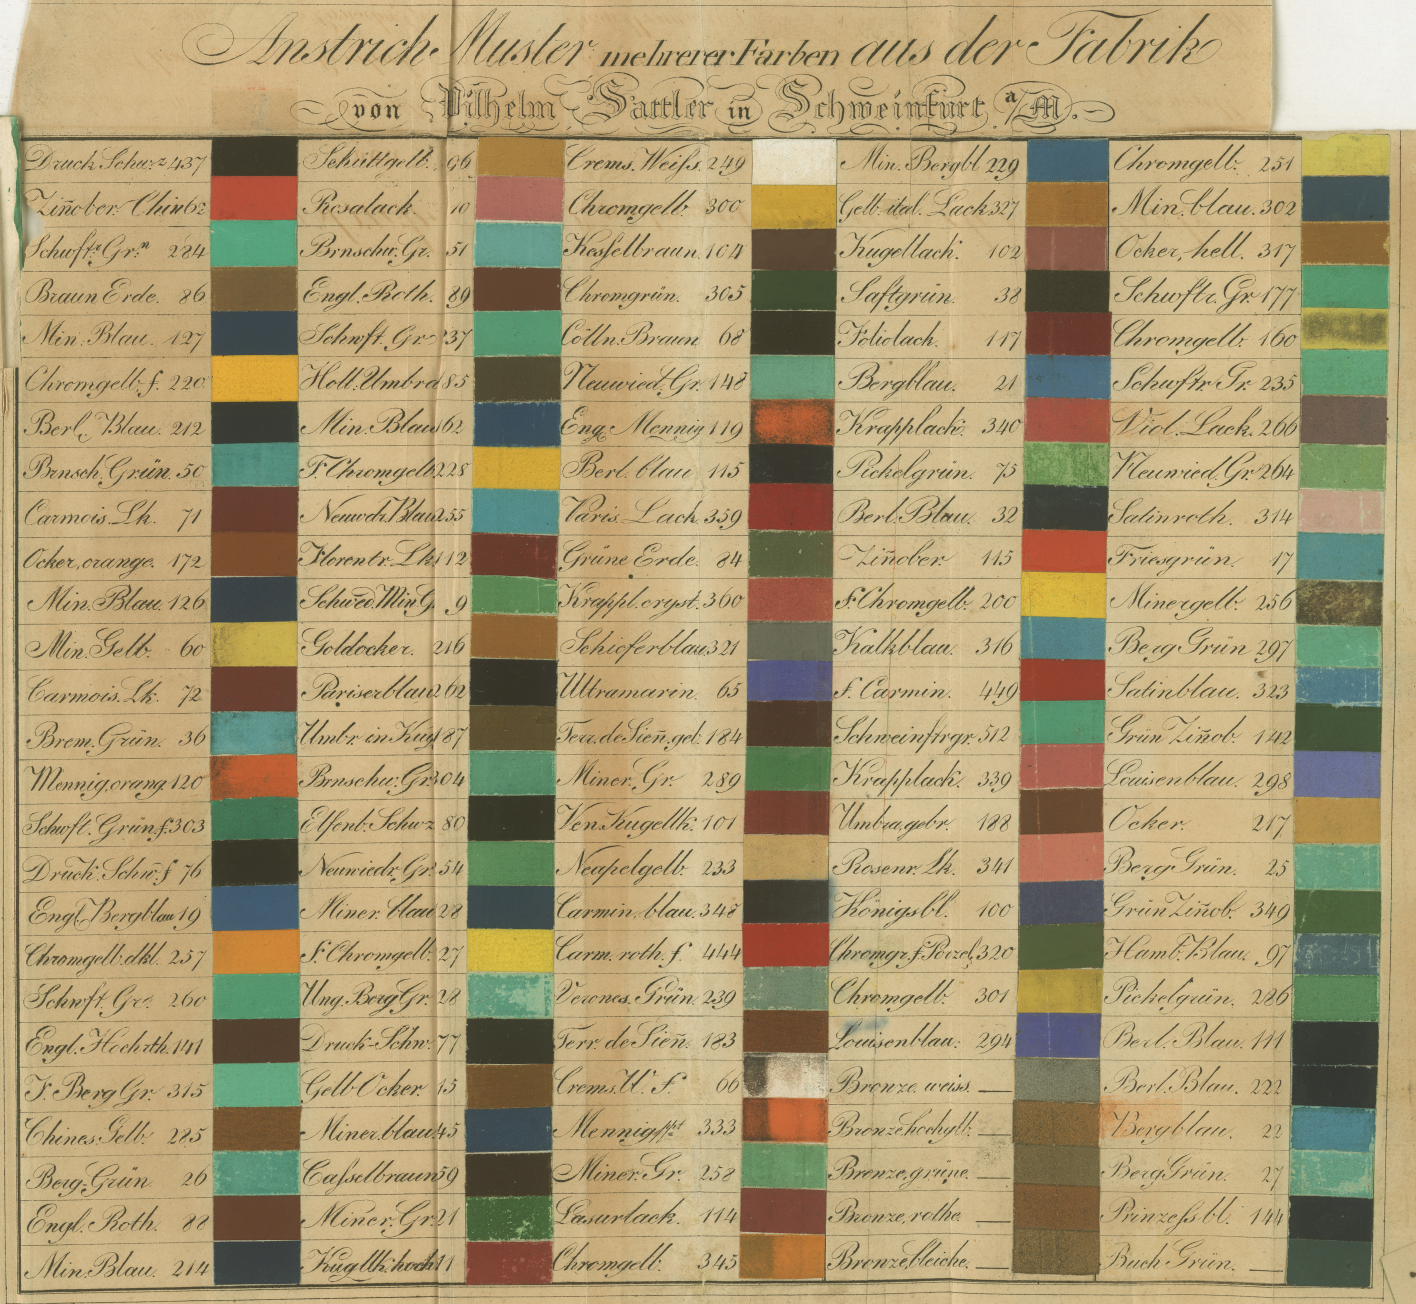 Anstrich Muster mehrerer Farben aus der Fabrik
von Wilhelm Sattler in Schweinfurt a/M.
Druck Schw:z 437 Schüttgelb. 96 Crems. Weiſs 249 Min. Bergbl 229 Chromgelb. 251
Zin̄ober Chin 62 Rosalack. 10 Chromgelb. 300 Gelb. ital. Lack 327 Min. blau. 302
Schwft. Gr:n 284 Brnschw. Gr. 51 Keſselbraun. 104 Kugellack. 102 Ocker, hell. 317
Braun Erde. 86 Engl. Roth. 89 Chromgrün. 305 Saftgrün. 38 Schwftr. Gr 177
Min. Blau. 127 Schwft. Gr. 237 Cölln. Braun 68 Foliolack. 117 Chromgelb. 160
Chromgelb. f. 220 Holl. Umbra 85 Neuwied. Gr. 148 Bergblau. 21 Schwftr Gr. 235
Berl. Blau. 212 Min. Blau 62 Eng. Mennig 119 Krapplack. 340 Viol. Lack. 266
Brnsch. Grün. 50 F. Chromgelb 228 Berl. blau 115 Pickelgrün. 75 Neuwied. Gr. 264
Carmois. Lk. 71 Neuwdr. Blau 255 Paris. Lack 359 Berl. Blau. 32 Satinroth. 314
Ocker, orange. 172 Florentr. Lk. 112 Grüne Erde. 84 Zin̄ober 115 Friesgrün. 17
Min. Blau. 126 Schwed. Min G. 9 Krappl. cryst. 360 f. Chromgelb. 200 Minergelb. 256
Min. Gelb. 60 Goldocker. 216 Schieferblau. 321 Kalkblau. 316 Berg Grün 297
Carmois. Lk. 72 Pariserblau 262 Ultramarin. 65 f. Carmin. 449 Satinblau. 323
Brem. Grün. 36 Umbr. in Kug 87 Terr. de Sien̄. geb. 184 Schweinftrgr. 512 Grün Zin̄ob. 142
Mennig, orang. 120 Brnschw. Gr. 304 Miner. Gr. 289 Krapplack. 339 Louisenblau. 298
Schwft. Grün. f. 303 Elfenb. Schwz 80 Ven. Kugellk. 101 Umbra, gebr. 188 Ocker. 217
Druck. Schw. f 76 Neuwiedr. Gr. 54 Neapelgelb. 233 Rosenr. Lk. 341 Berg Grün. 25
Engl. Bergblau 19 Miner. blau 28 Carmin, blau. 348 Königsbl. 100 Grün Zin̄ob. 349
Chromgelb. dkl. 257 f. Chromgelb. 27 Carm. roth. f. 444 Chromgr. f. Porzel. 320 Hamb. Blau. 97
Schwft. Gr. 260 Ung. Berg Gr. 28 Verones. Grün. 239 Chromgelb. 301 Pickelgrün. 286
Engl. Hochrth. 141 Druck-Schw. 77 Terr. de Sien̄. 183 Louisenblau. 294 Berl. Blau. 111
F. Berg Gr. 315 Gelb Ocker 15 Crems. W. f. 66 Bronze, weiss. — Berl. Blau. 222
Chines. Gelb. 285 Miner. blau 45 Mennig 333 Bronze hochglb. — Bergblau. 22
Berg. Grün 26 Caſselbraun 59 Miner. Gr. 258 Bronze, grüne. — Berg Grün. 27
Engl. Roth. 88 Miner. Gr. 21 Lasurlack. 114 Bronze, rothe. — Prinzeſsbl. 144
Min. Blau. 214 Kugllk. hoch 11 Chromgelb. 345 Bronze, bleiche. — Buch Grün. —